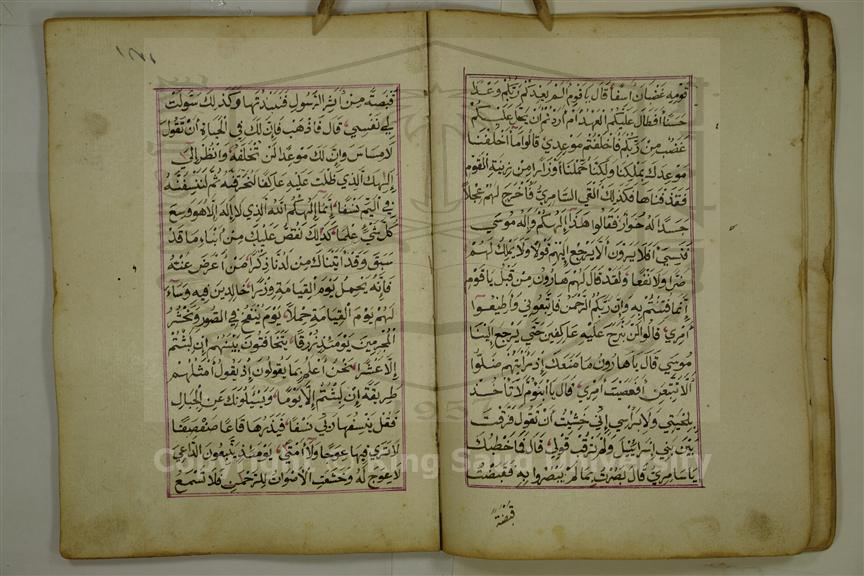 قومه غضبان اسفا قال يا قوم الم يعدكم ربكم وعدا
حسنا افطال عليكم العهد ام اردتم ان يحل عليكم
غضب من ربكم فاخلفتم موعدي قالوا ما اخلفنا
موعدك بملكنا ولكنا حملنا اوزارا من زينة القوم
فقذفناها فكذلك القى السامري فاخرج لهم عجلا
جسدا له خوار فقالوا هذا الهكم واله موسى
فنسي افلا يرون الا يرجع اليهم قولا ولا يملك لهم
ضرا ولا نفعا ولقد قال لهم هارون من قبل يا قوم
انما فتنتم به وان ربكم الرحمن فاتبعوني واطيعوا
امري قالوا لن نبرح عليه عاكفين حتى يرجع الينا
موسى قال يا هارون ما منعك اذ رايتهم ضلوا
الا تتبعن افعصيت امري قال يا ابنؤم لا تأخذ
بلحيتي ولا براسي اني خشيت ان تقول فرقت
بين بني اسرائيل ولم ترقب قولي قال فما خطبك
يا سامري قال بصرت بما لم يبصروا به فقبضت
قبضة
١٧١
قبضة من اثر الرسول فنبذتها وكذلك سولت
لي نفسي قال فاذهب فان لك في الحياة ان تقول
لا مساس وان لك موعدا لن تخلفه وانظر الى
الهك الذي ظلت عليه عاكفا لنحرقنه ثم لننسفنه
في اليم نسفا انما الهكم الله الذي لا اله الا هو وسع
كل شي علما كذلك نقص عليك من انباء ما قد
سبق وقد اتيناك من لدنا ذكرا من اعرض عنه
فانه يحمل يوم القيامة وزرا خالدين فيه وساء
لهم يوم القيامة حملا يوم ينفخ في الصور ونحشر
المجرمين يومئذ زرقا يتخافتون بينهم ان لبثتم
الا عشرا نحن اعلم بما يقولون اذ يقول امثلهم
طريقة ان لبثتم الا يوما ويسئلونك عن الجبال
فقل ينسفها ربي نسفا فيذرها قاعا صفصفا
لا ترى فيها عوجا ولا امتا يومئذ يتبعون الداعي
لا عوج له وخشعت الاصوات للرحمن فلا تسمع
Copyright © King Saud University
195